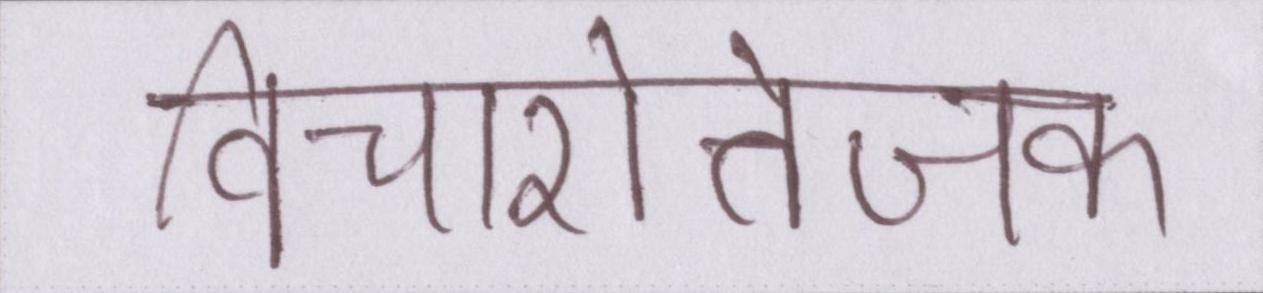 विचारोतेजक